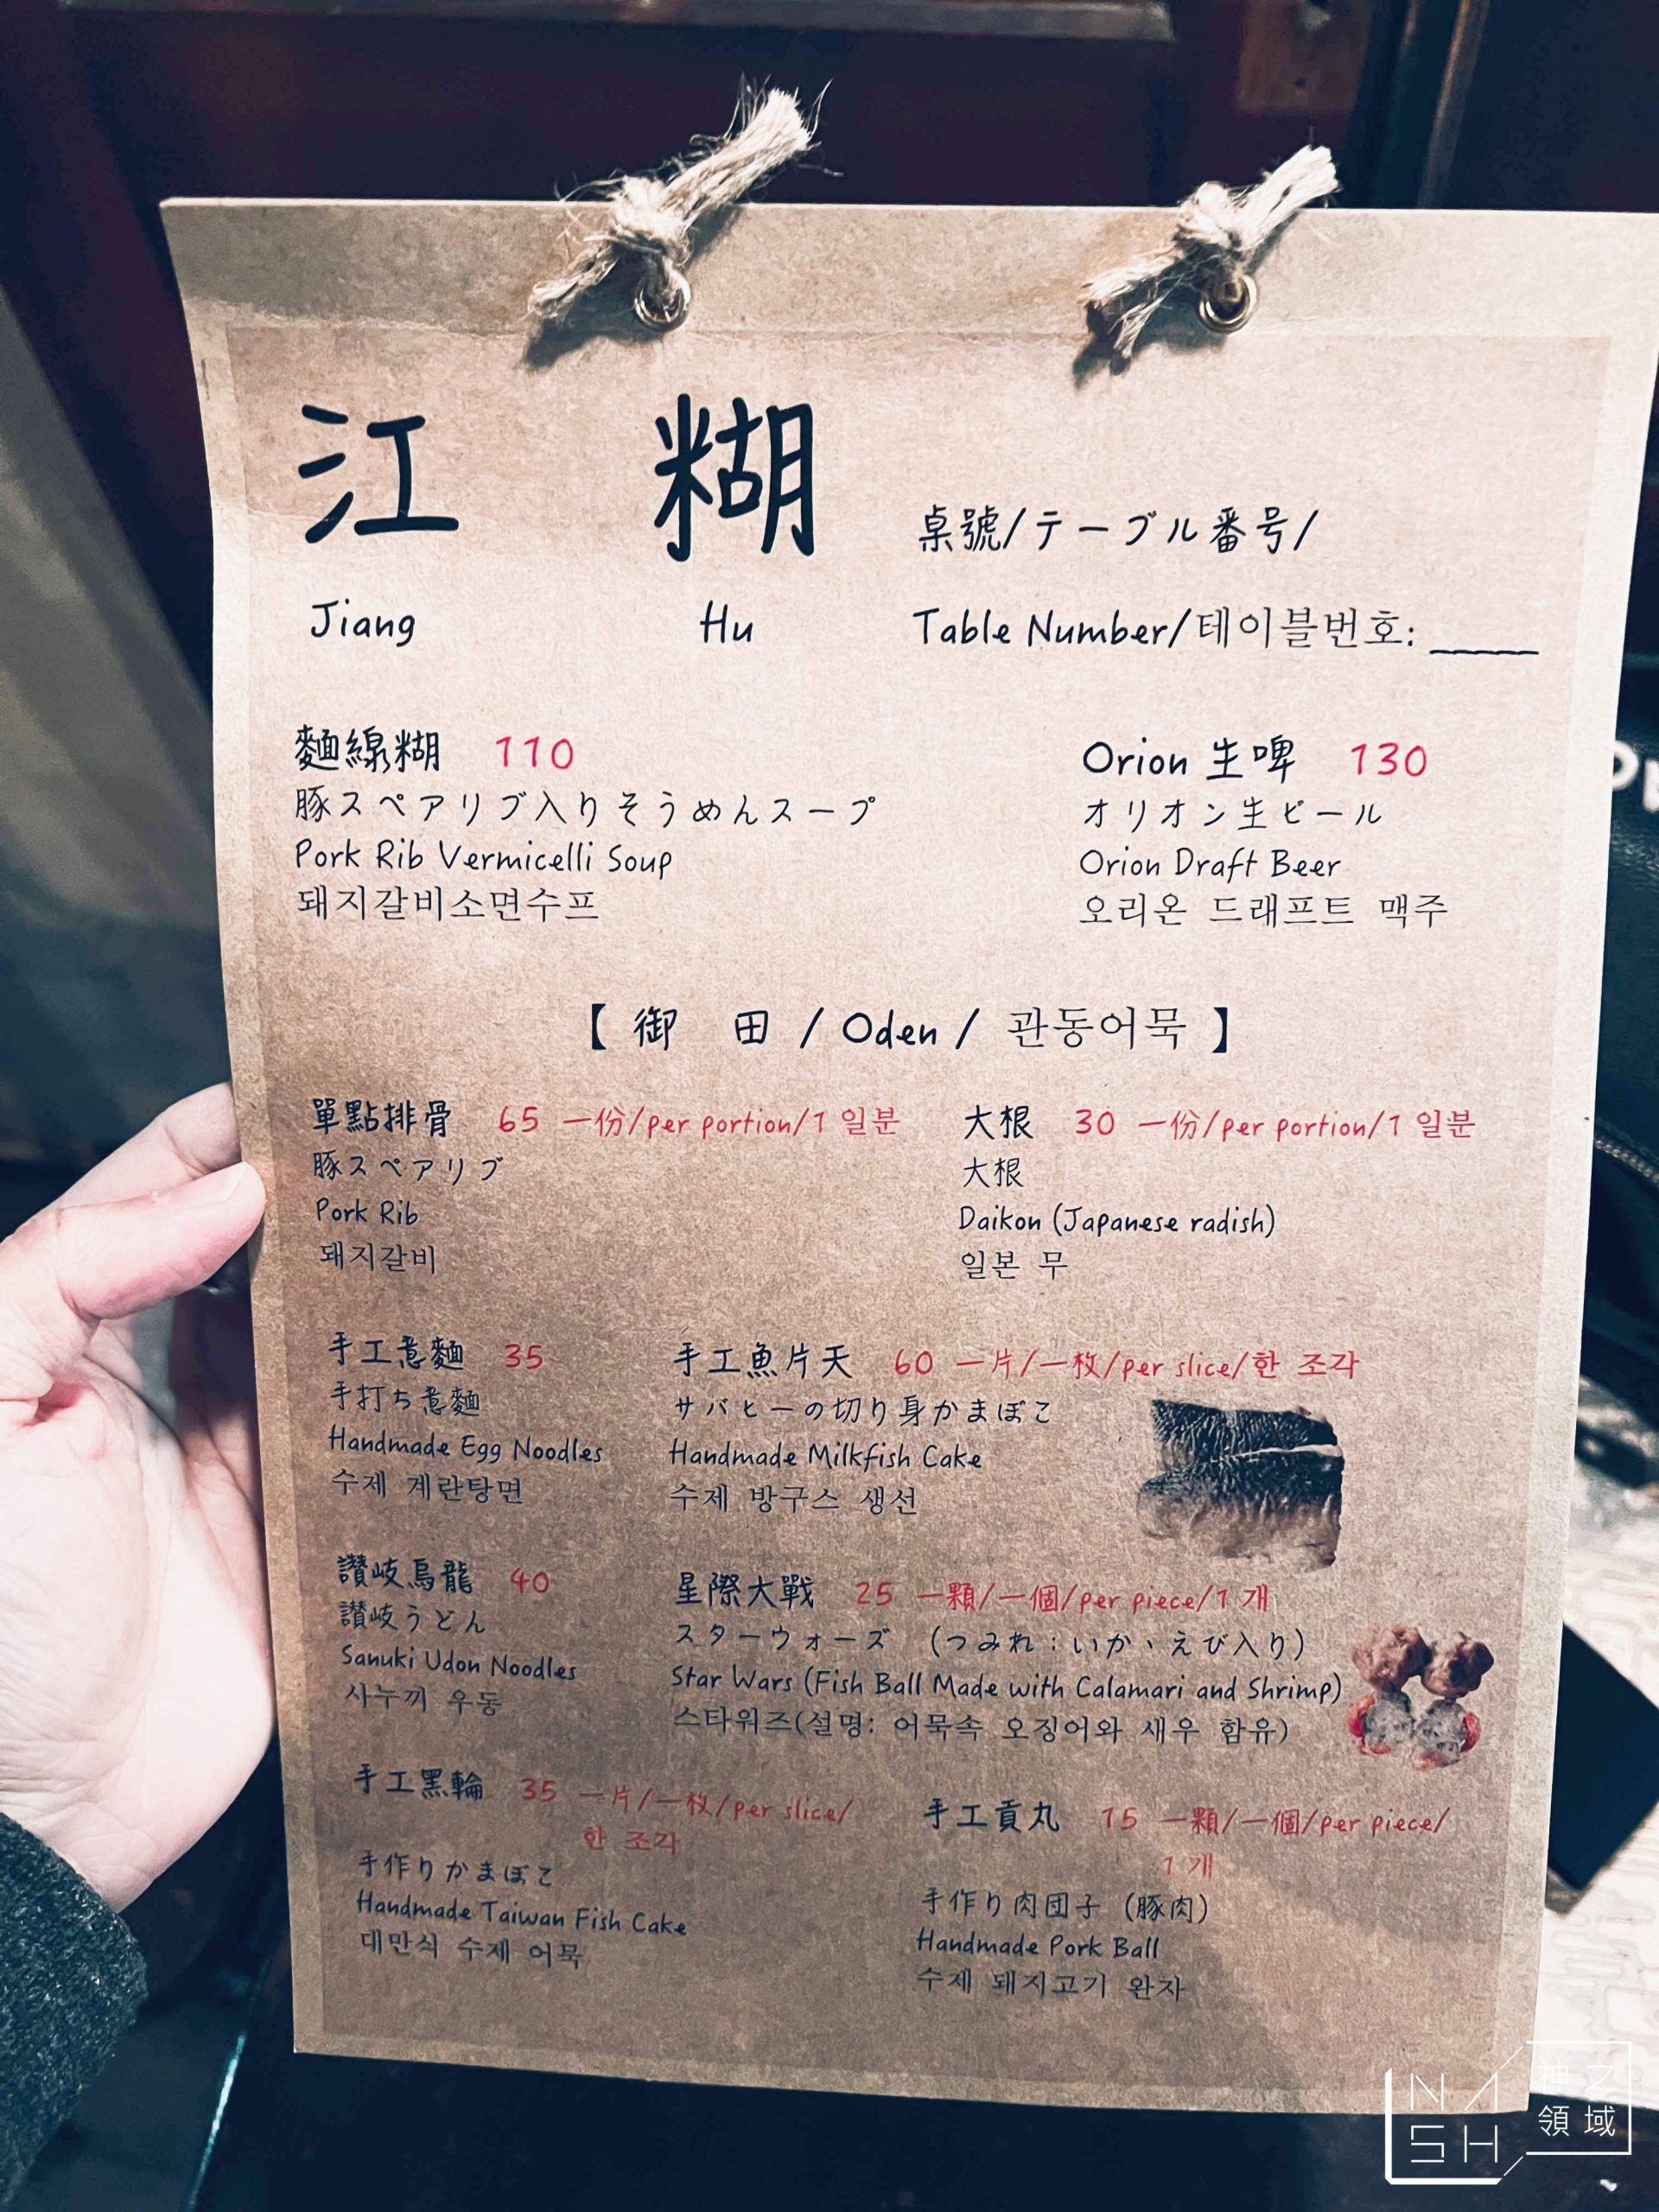 江 糊
桌號/テーブル番号/
Jiang Hu
Table Number/테이블번호: _____
麵線糊 110
豚スペアリブ入りそうめんスープ
Pork Rib Vermicelli Soup
돼지갈비소면수프
Orion 生啤 130
オリオン生ビール
Orion Draft Beer
오리온 드래프트 맥주
【 御 田 / Oden / 관동어묵 】
單點排骨 65 一份/per portion/1 일분
豚スペアリブ
Pork Rib
돼지갈비
大根 30 一份/per portion/1 일분
大根
Daikon (Japanese radish)
일본 무
手工意麵 35
手打ち意麵
Handmade Egg Noodles
수제 계란탕면
手工魚片天 60 一片/一枚/per slice/한 조각
サバヒーの切り身かまぼこ
Handmade Milkfish Cake
수제 방구스 생선
讚岐烏龍 40
讃岐うどん
Sanuki Udon Noodles
사누끼 우동
星際大戰 25 一顆/一個/per piece/1 개
スターウォーズ (つみれ：いか、えび入り)
Star Wars (Fish Ball Made with Calamari and Shrimp)
스타워즈(설명: 어묵속 오징어와 새우 함유)
手工黑輪 35 一片/一枚/per slice/
한 조각
手作りかまぼこ
Handmade Taiwan Fish Cake
대만식 수제 어묵
手工貢丸 15 一顆/一個/per piece/
1 개
手作り肉団子 (豚肉)
Handmade Pork Ball
수제 돼지고기 완자
NASH
神之
領域